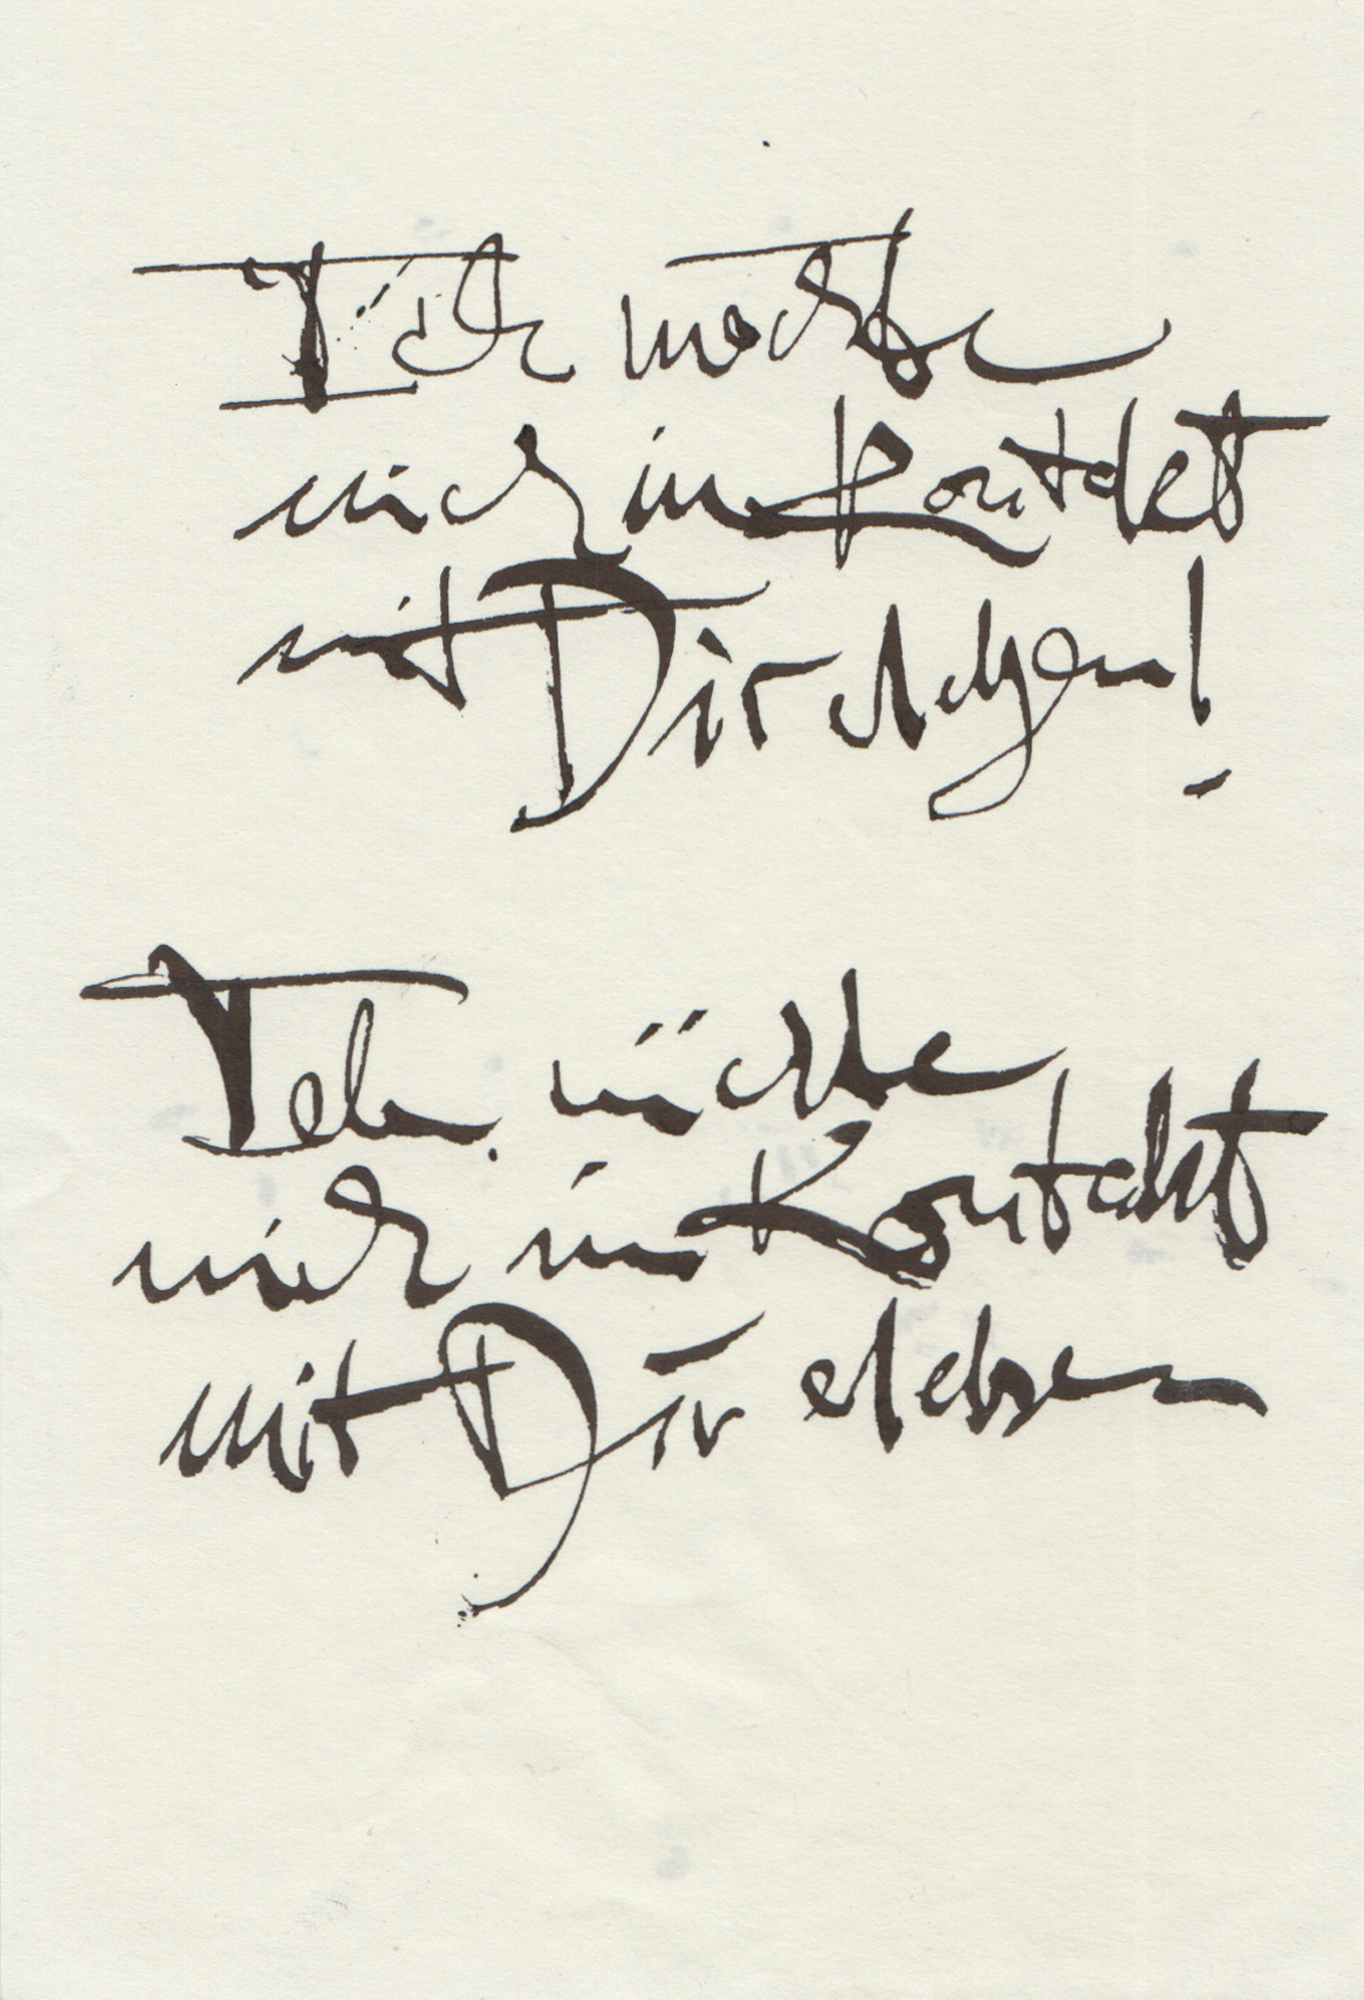 Ich möchte
mich in Kontakt
mit Dir erleben!
Ich möchte
mich in Kontakt
mit Dir erleben